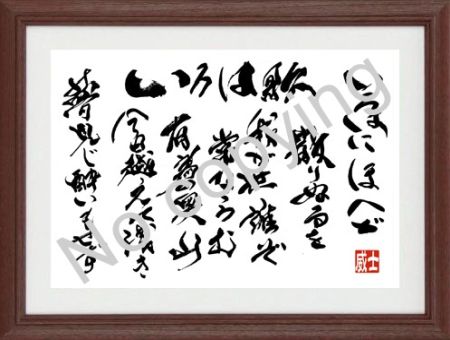 いろは歌
いろはにほへど
散りぬるを
我が世誰ぞ
常ならむ
有為の奥山
今日越えて浅き
夢見じ酔いもせず
威士
No copying